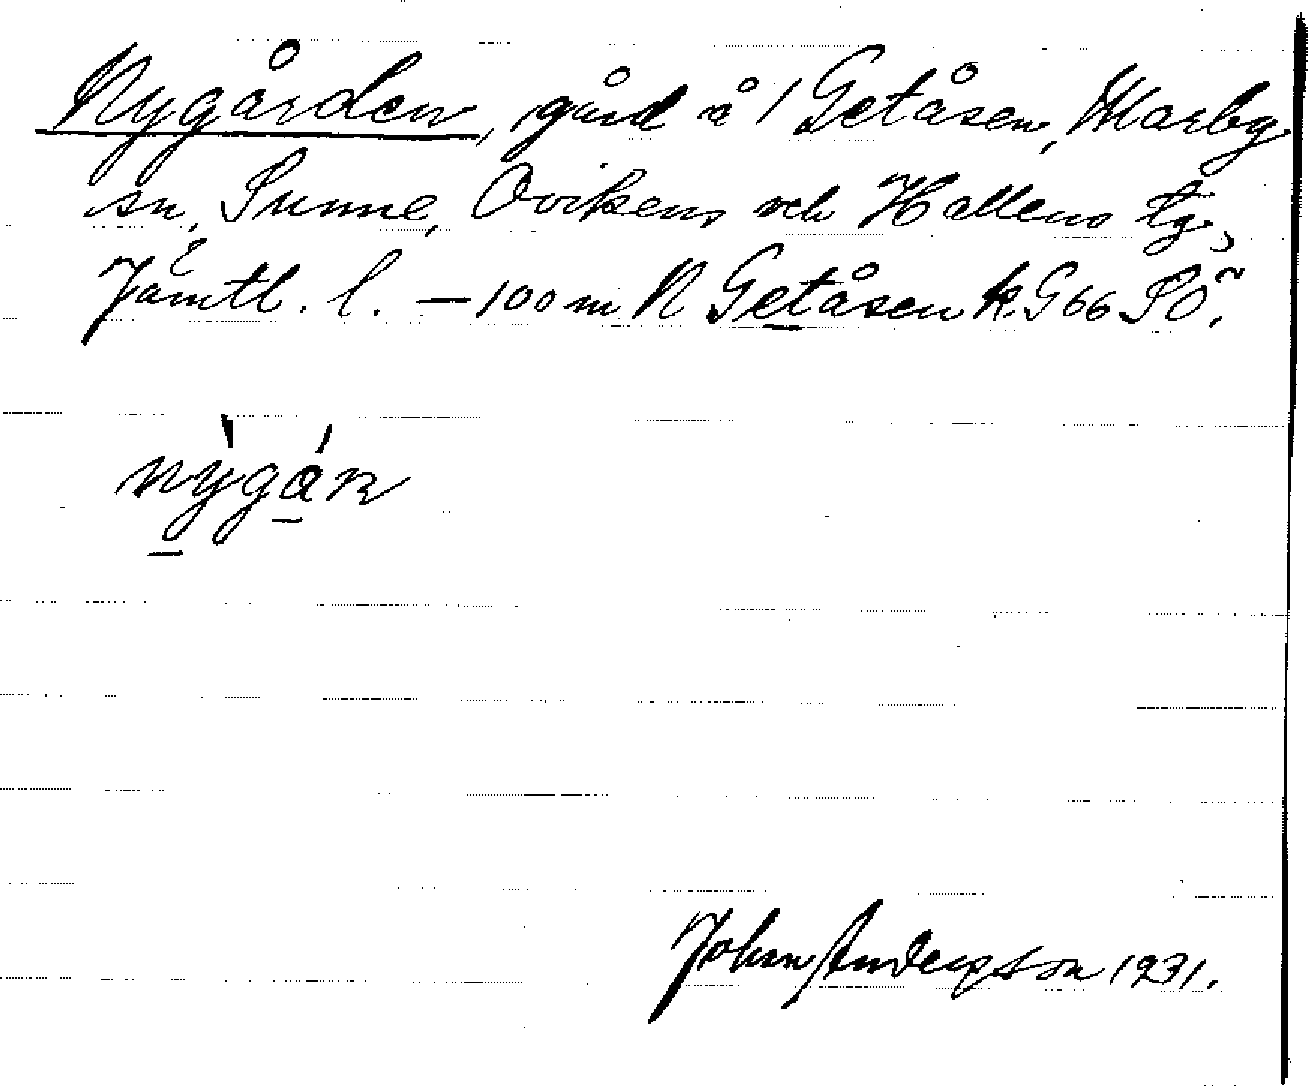 Nygården, gård å 1 Getåsen, Marby
sn, Sunne, Ovikens och Hallens tg,
Jämtl. l. — 100 m N Getåsen k. G66 SÖ.
nýgáṉ
John Anderson 1931.